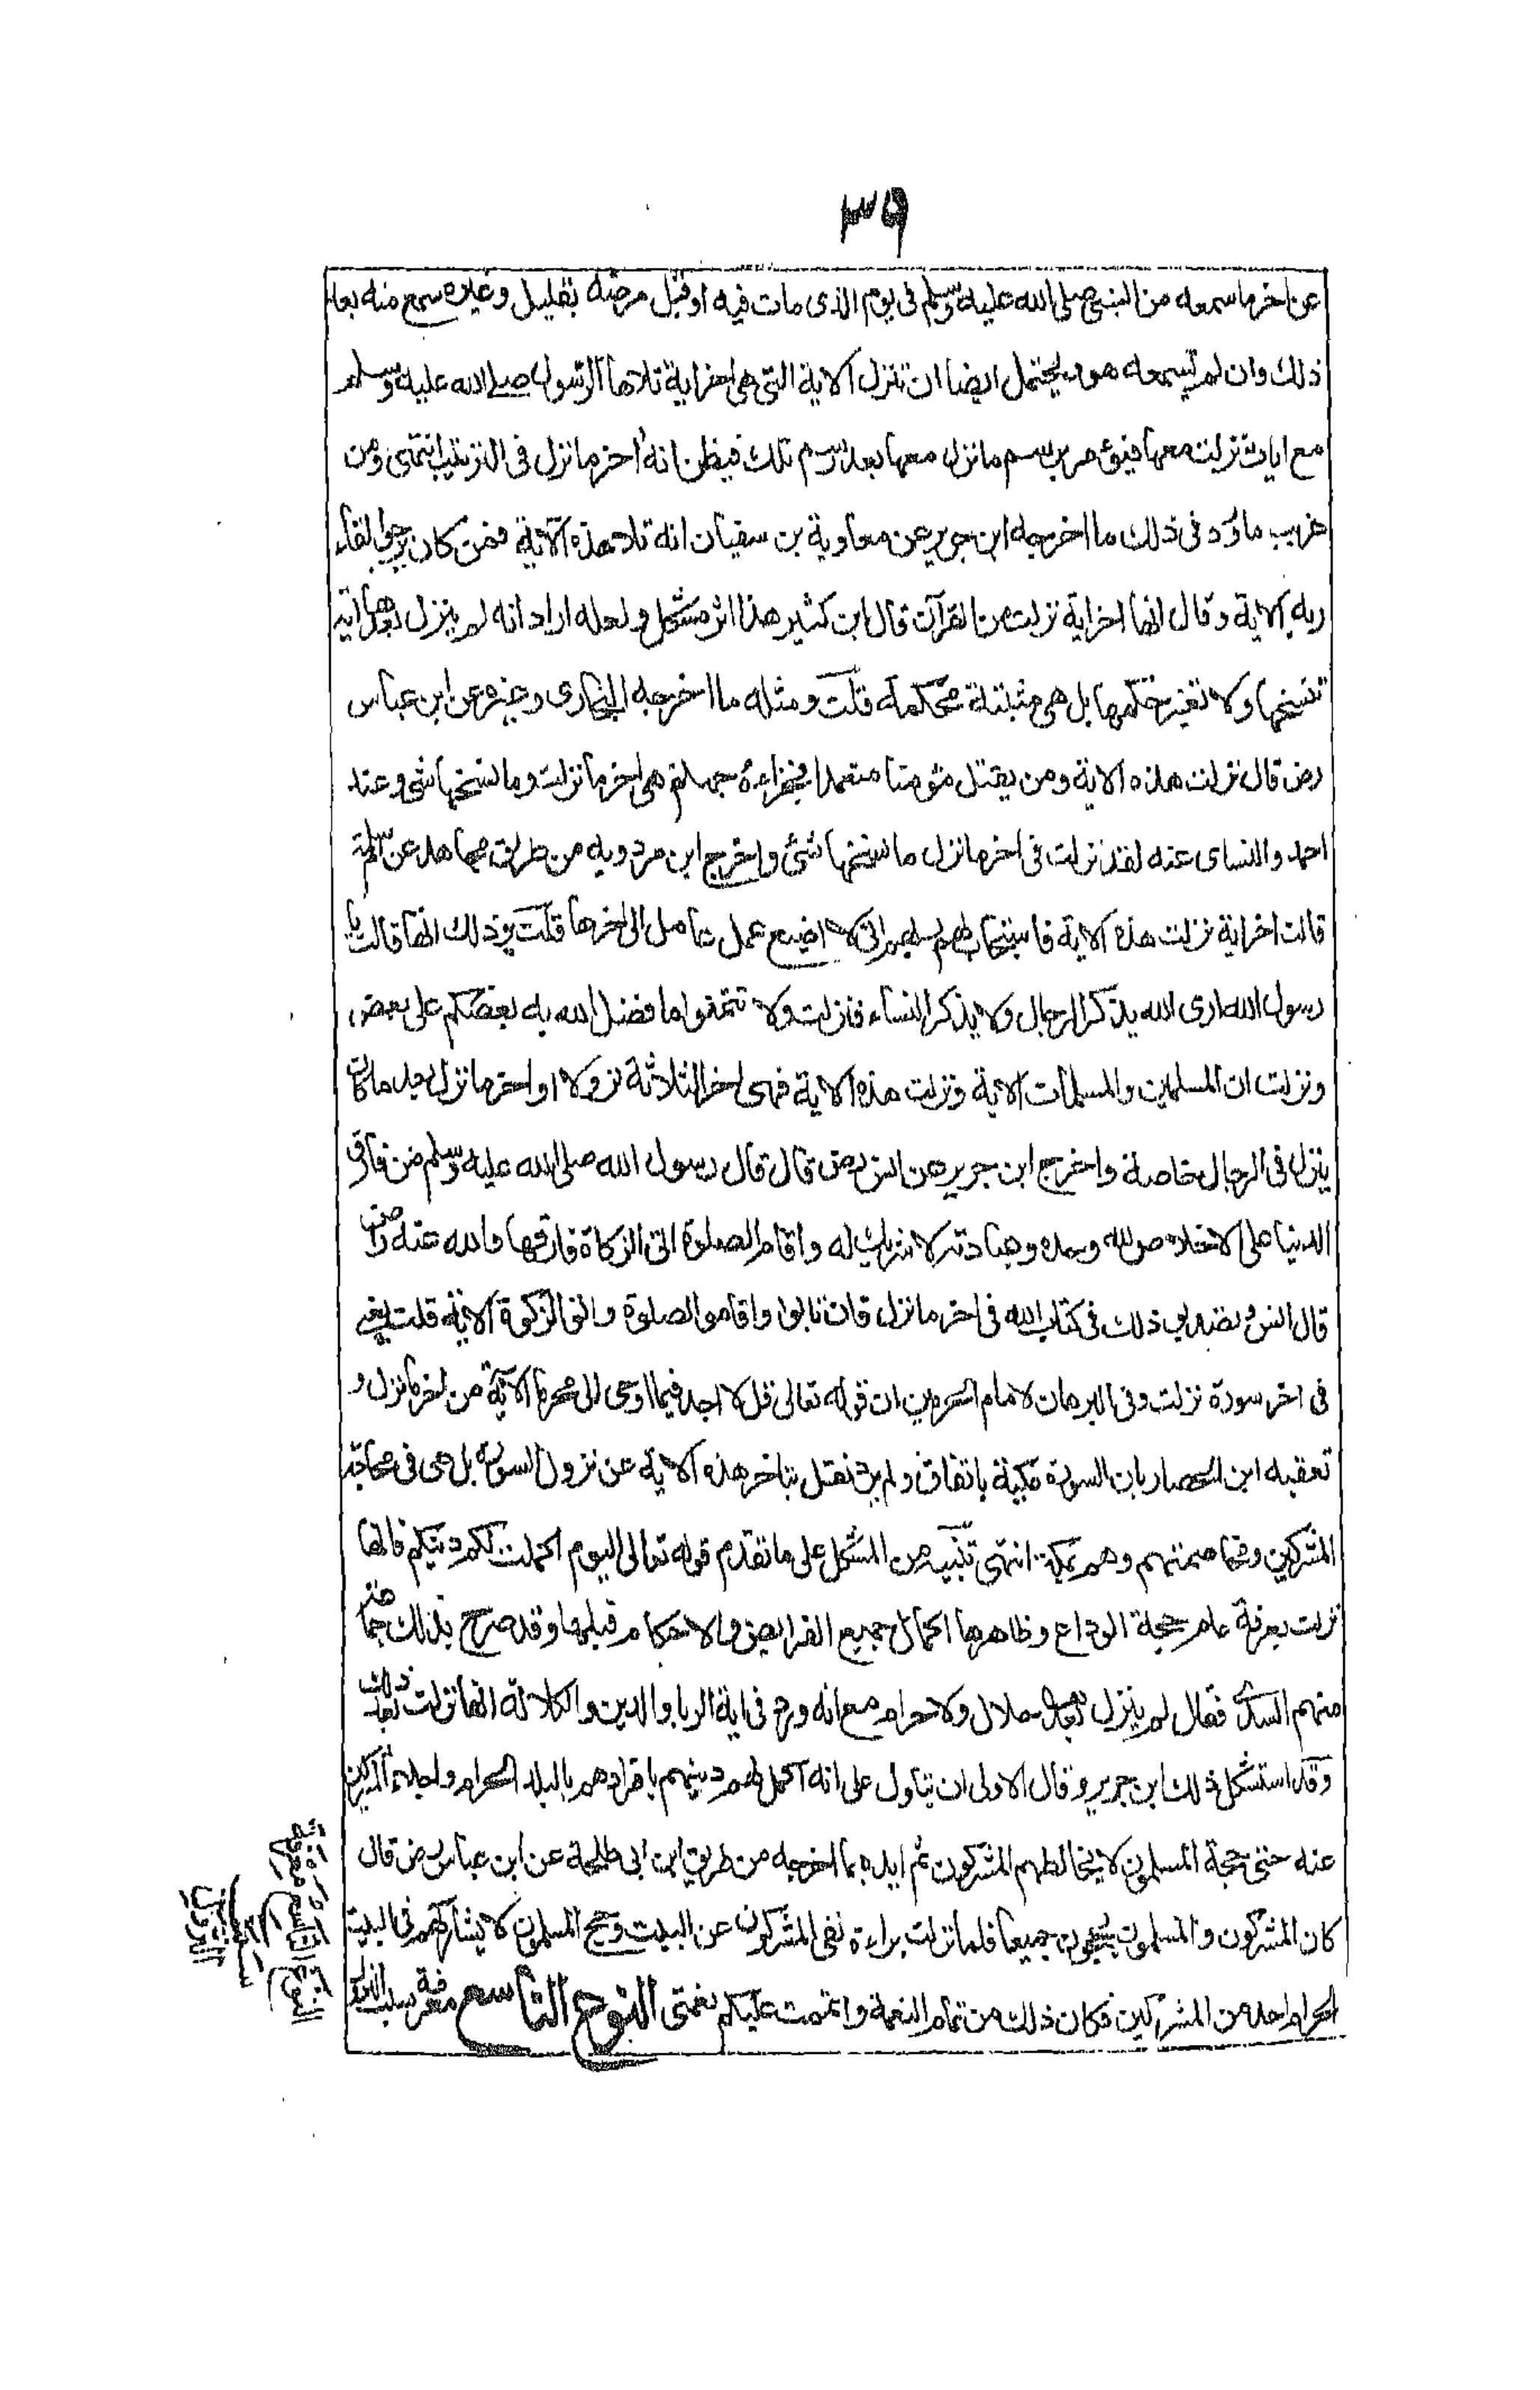 ٣٩
عن اخر ما سمعه من النبي صلى الله عليه وسلم فى يوم الذى مات فيه او قبل مرضه بقليل وغيره سمع منه بعد
ذلك وان لم يسمعه هو ويحتمل ايضا ان تنزل الاية التى هى اخر اية تلاها الرسول صلى الله عليه وسلم
مع ايات نزلت معها فيؤمر برسم ما نزل معها بعد رسم تلك فيظن انه اخر ما نزل فى الترتيب انتهى ومن
غريب ما ورد فى ذلك ما اخرجه ابن جرير عن معاوية بن سفيان انه تلا هذه الآية فمن كان يرجوا لقاء
ربه الاية وقال انها اخر اية نزلت من القرآن قال ابن كثير هذا اثر مشكل ولعله اراد انه لم ينزل بعدها آية
تنسخها ولا تغير حكمها بل هى مثبتة محكمة قلت ومثله ما اخرجه البخارى وغيره عن ابن عباس
رض قال نزلت هذه الاية ومن يقتل مؤمنا متعمدا فجزاءه جهنم هى اخر ما نزلت وما نسخها شئ وعند
احمد والنساى عنه لقد نزلت فى اخر ما نزل ما نسخها شئ واخرج ابن مردويه من طريق مجاهد عن ام سلمة
قالت اخر اية نزلت هذه الاية فاستجاب لهم ربهم انى لا اضيع عمل عامل الى اخرها قلت وذلك انها قالت يا
رسول الله ارى الله يذكر الرجال ولا يذكر النساء فنزلت ولا تتمنوا ما فضل الله به بعضكم على بعض
ونزلت ان المسلمين والمسلمات الاية ونزلت هذه الاية فهى اخر الثلاثة نزولا او اخر ما نزل بعد ما كان
ينزل فى الرجال خاصة واخرج ابن جرير عن انس رض قال قال رسول الله صلى الله عليه وسلم من فارق
الدنيا على الاخلاص لله وحده وعبادته لا شريك له واقام الصلوة اتى الزكاة فارقها والله عنه راض
قال انس وتصديق ذلك فى كتاب الله فى اخر ما نزل فان تابوا واقاموا الصلوة واتوا الزكوة الاية قلت يعنى
فى اخر سورة نزلت وفى البرهان لامام الحرمين ان قوله تعالى قل لا اجد فيما اوحى الى محرما الآية من اخر ما نزل و
تعقبه ابن الحصار بان السورة مكية باتفاق ولم يرد نقل بتاخر هذه الاية عن نزول السورة بل هى فى محاجة
المشركين ومخاصمتهم وهم بمكة انتهى تنبيه من المشكل على ما تقدم قوله تعالى اليوم اكملت لكم دينكم فانها
نزلت بعرفة عام حجة الوداع وظاهرها اكمال جميع الفرايض والاحكام قبلها وقد صرح بذلك جماعة
منهم السدى فقال لم ينزل بعدها حلال ولا حرام مع انه ورد فى اية الربا والدين والكلالة انها نزلت بعد ذلك
وقد استشكل ذلك ابن جرير وقال الاولى ان يتاول على انه اكمل لهم دينهم بافرادهم بالبلد الحرام واجلاء المشركين
عنه حتى حجة المسلمون لا يخالطهم المشركون ثم ايده بما اخرجه من طريق ابن ابى طلحة عن ابن عباس رض قال
كان المشركون والمسلمون يحجون جميعا فلما نزلت براءة نفى المشركون عن البيت وحج المسلمون لا يشاركهم فى البيت
الحرام احد من المشركين فكان ذلك من تمام النعمة واتممت عليكم نعمتى النوع التاسع معرفة سبب النزول
النوع التاسع معرفة
سبب
النزول